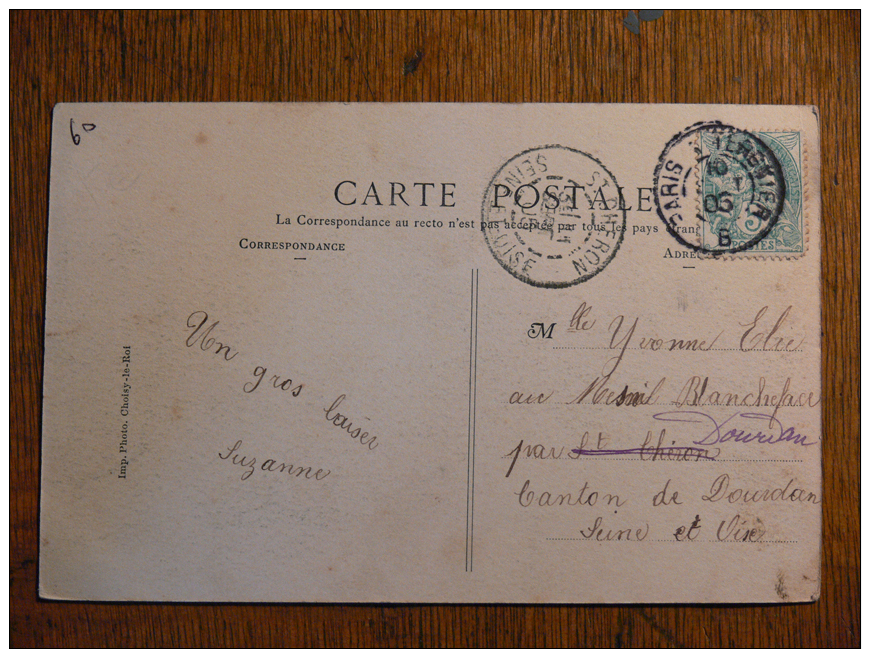 60
CARTE POSTALE
La Correspondance au recto n'est pas acceptée par tous les pays étran
CORRESPONDANCE
ADRE
PARIS A TERGNIER
10
05
B
ST CHERON
SEINE-ET-OISE
POSTES
Un
gros
baiser
Suzanne
Imp. Photo. Choisy-le-Roi
Mlle Yvonne Elie
au Mesnil Blancheface
par St Chéron Dourdan
Canton de Dourdan
Seine et Oise